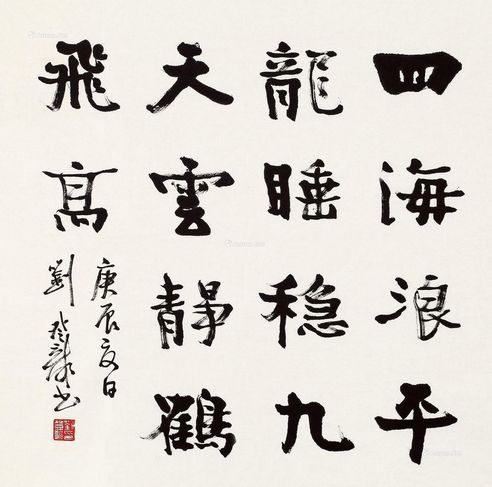 四海浪平
龍睡穩九
天雲靜鶴
飛高
庚辰夏日
劉